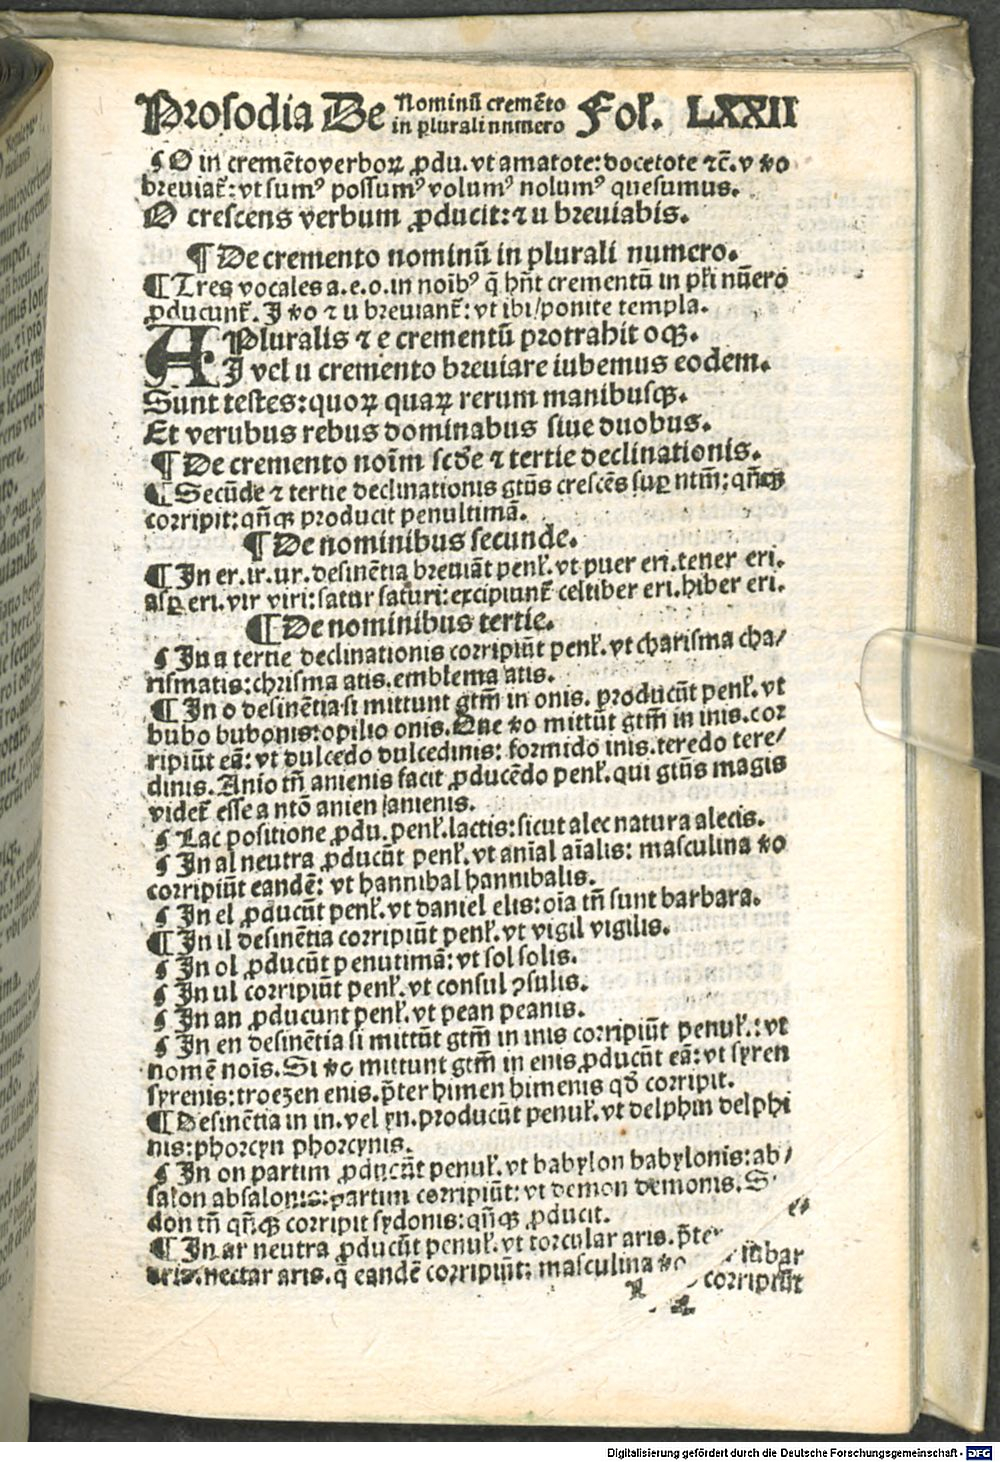 Prosodia De Nominū cremēto in plurali numero Fol. LXXII
¶ O in cremēto verboꝝ ꝓdu. vt amatote: docetote ⁊c̄. v ꝟo
breviat̄: vt sumꝰ possumꝰ volumꝰ nolumꝰ quesumus.
O crescens verbum ꝓducit: ⁊ u breuiabis.
¶ De cremento nominū in plurali numero.
¶ Tres vocales a.e.o. in noīb᷒ q̄ hn̄t crementū in płi nūero
ꝓducunt̄. I ꝟo ⁊ u breuiant̄: vt ibi/ponite templa.
A Pluralis ⁊ e crementū protrahit oqꝫ.
I vel u cremento breuiare iubemus eodem.
Sunt testes: quoꝝ quaꝝ rerum manibusqꝫ.
Et verubus rebus dominabus siue duobus.
¶ De cremento noīm scd̄e ⁊ tertie declinationis.
¶ Secūde ⁊ tertie declinationis gtūs crescēs suꝑ ntm̄: qn̄qꝫ
corripit: qn̄qꝫ producit penultimā.
¶ De nominibus secunde.
¶ In er.ir.ur. desinētia breuiāt penł. vt puer eri. tener eri.
asꝑ eri. vir viri: satur saturi: excipiunt̄ celtiber eri. hiber eri.
¶ De nominibus tertie.
¶ In a tertie declinationis corripiūt penł. vt charisma cha/
rismatis: chrisma atis. emblema atis.
¶ In o desinētia si mittunt gtm̄ in onis. producūt penł. vt
bubo bubonis: opilio onis. Que ꝟo mittūt gtm̄ in inis. cor
ripiūt eā: vt dulcedo dulcedinis: formido inis. teredo tere/
dinis. Anio tn̄ anienis facit ꝓducēdo penł. qui gtūs magis
videt̄ esse a ntō anien/anienis.
¶ Lac positione ꝓdu. penł. lactis: sicut alec natura alecis.
¶ In al neutra ꝓducūt penł. vt aīal aīalis: masculina ꝟo
corripiūt eandē: vt hannibal hannibalis.
¶ In el ꝓducūt penł. vt daniel elis: oīa tn̄ sunt barbara.
¶ In il desinētia corripiūt penł. vt vigil vigilis.
¶ In ol ꝓducūt penutimā: vt sol solis.
¶ In ul corripiūt penł. vt consul ꝯsulis.
¶ In an ꝓducunt penł. vt pean peanis.
¶ In en desinētia si mittūt gtm̄ in inis corripiūt penuł.: vt
nomē nois̄. Si ꝟo mittunt gtm̄ in enis ꝓducūt eā: vt syren
syrenis: troezen enis. p̄ter himen himenis qd̄ corripit.
¶ Desinētia in in. vel yn. producūt penuł. vt delphin delphi
nis: phorcyn phorcynis.
¶ In on partim ꝓducūt penuł. vt babylon babylonis: ab/
salon absalonis: partim corripiūt: vt demon demonis. S
don tn̄ qn̄qꝫ corripit sydonis: qn̄qꝫ ꝓducit.
¶ In ar neutra ꝓducūt penuł. vt torcular aris. p̄ter iubar
aris. nectar aris. q̄ eandē corripiūt: masculina ꝟo corripiūt
Digitalisierung gefördert durch die Deutsche Forschungsgemeinschaft - DFG